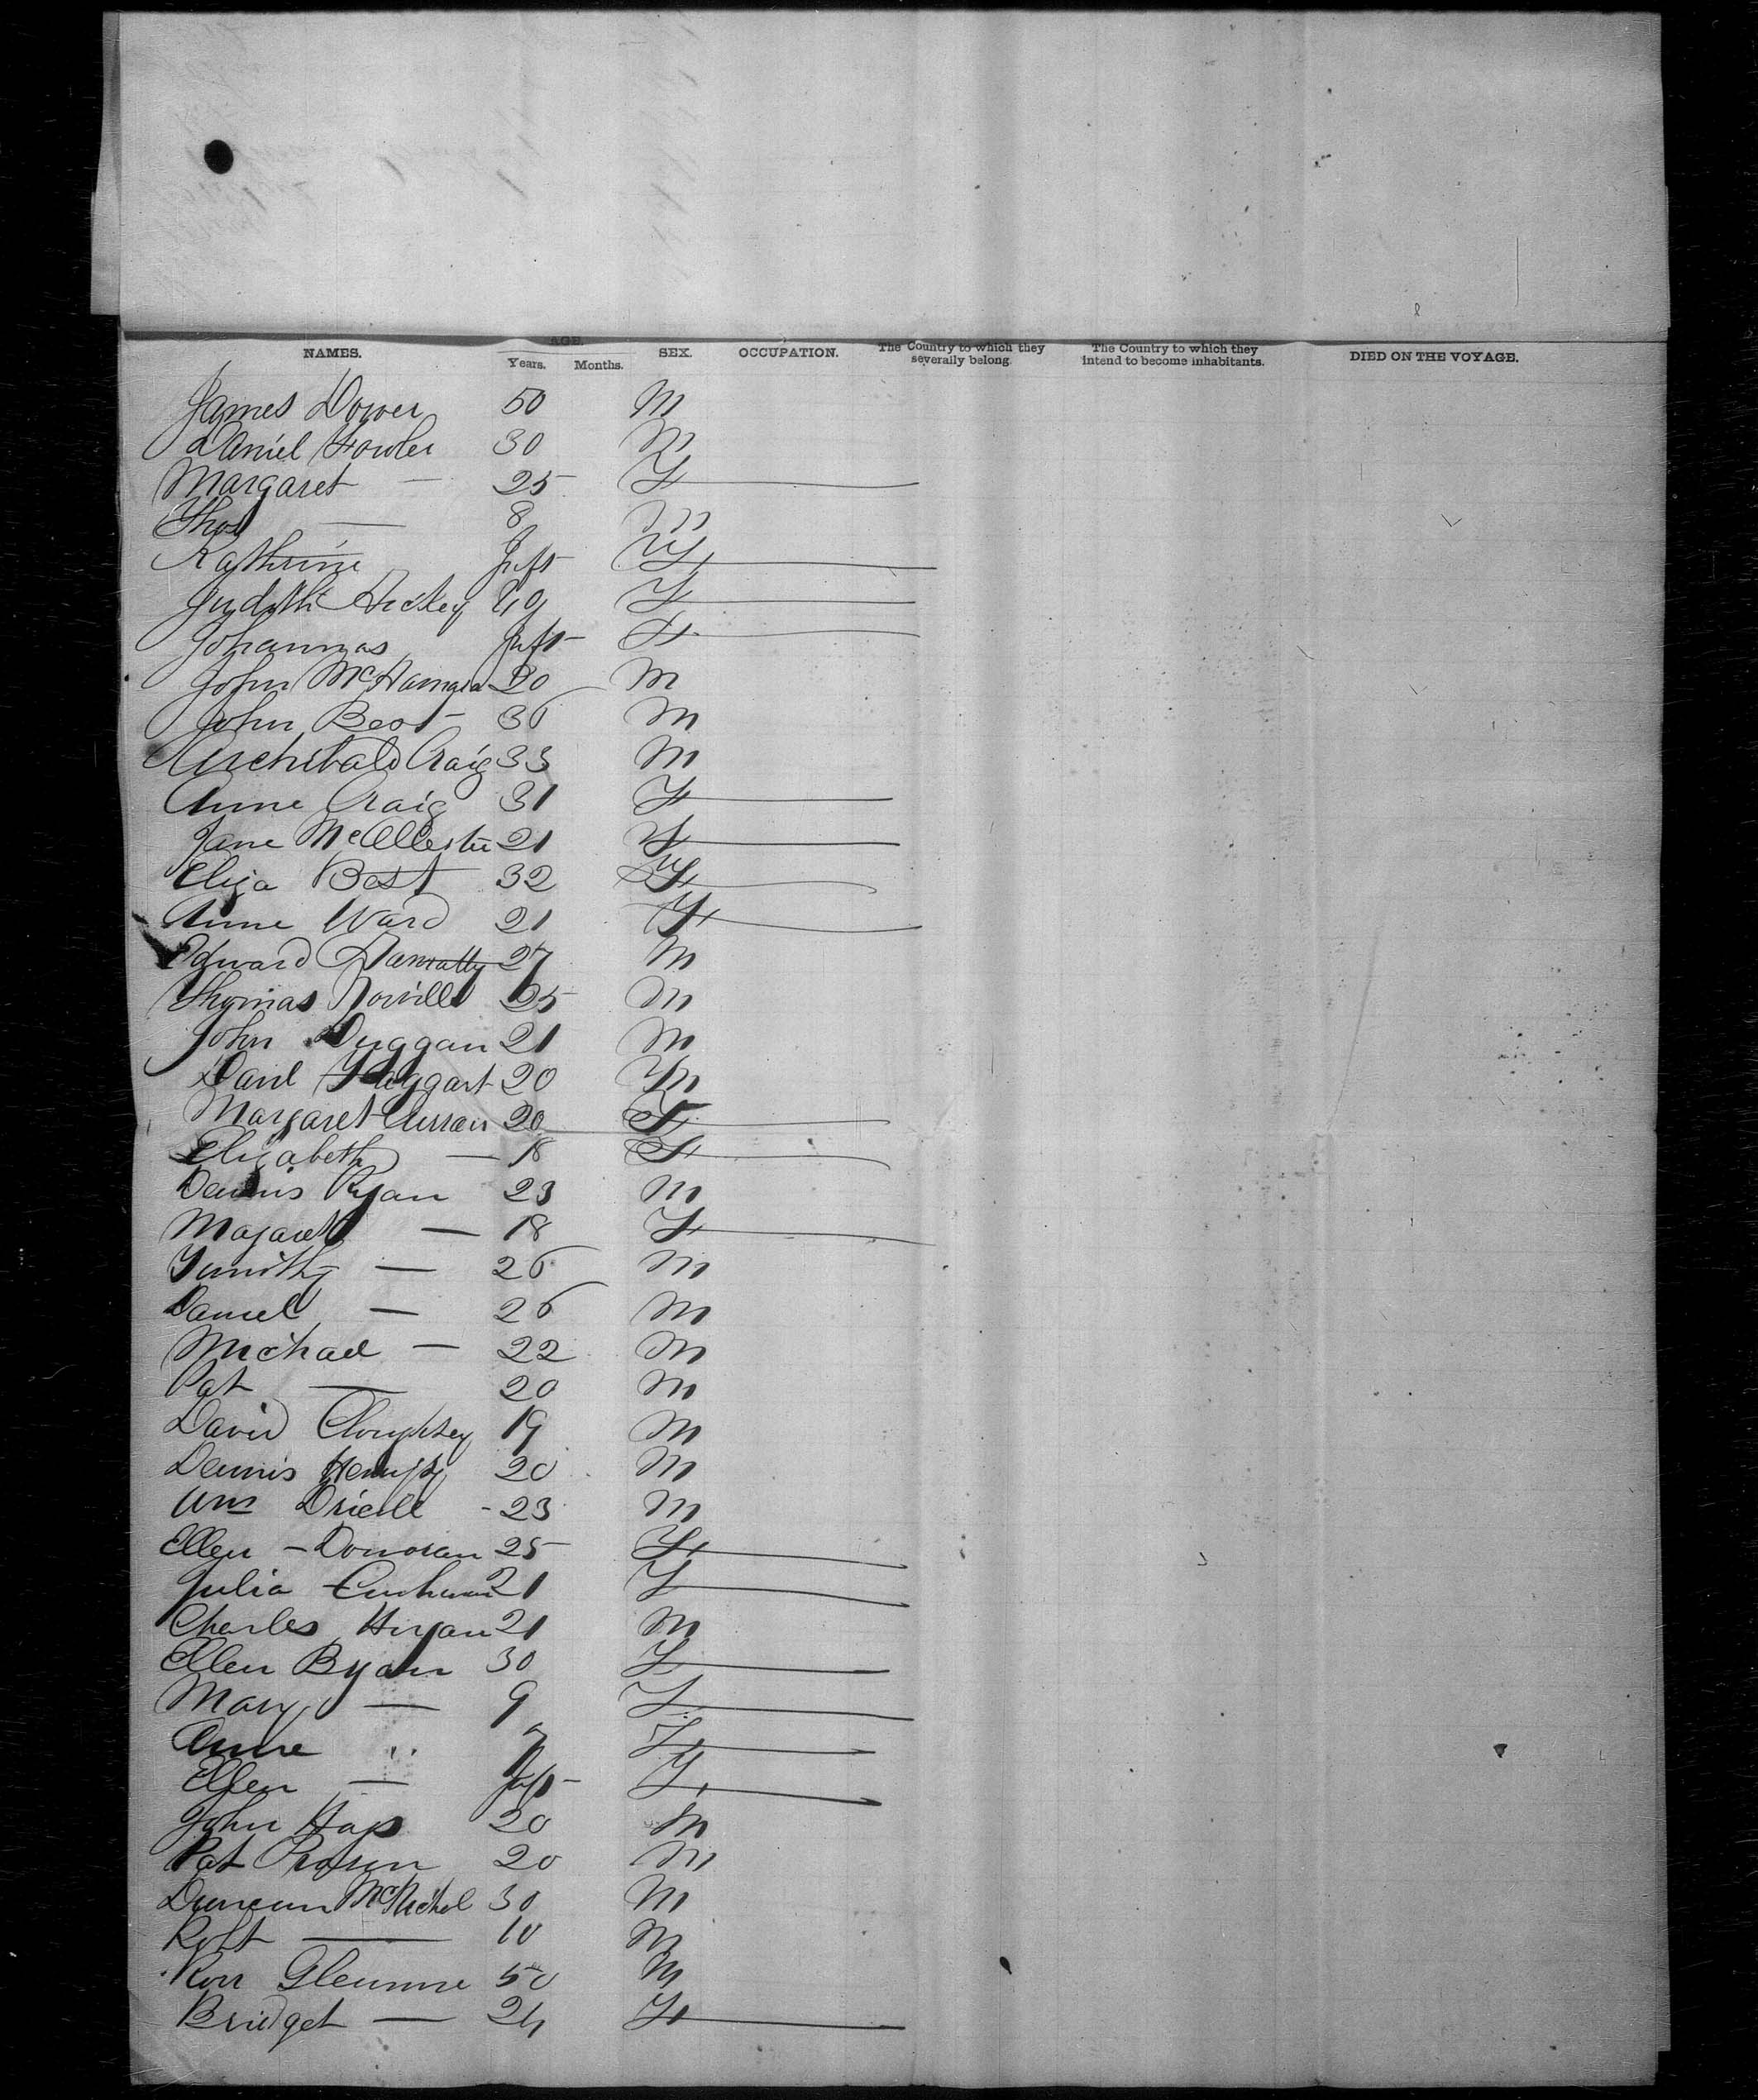 NAMES. AGE. Years. Months. SEX. OCCUPATION. The Country to which they severally belong. The Country to which they intend to become inhabitants. DIED ON THE VOYAGE.
James Dower 50 M
Daniel Fowler 30 M
Margaret — 25 F
Thos — 8 M
Kathrine Inft F
Judith Hickey 40 F
Johannas Inft F
John 20 M
John Best 36 M
Archibald Craig 33 M
Anne Craig 31 F
Jane McAllester 21 F
Eliza Best 32 F
Anne Ward 21 F
Edward 27 M
Thomas 25 M
John Duggan 21 M
Danl Haggart 20 M
Margaret Curran 20 F
Elizabeth — 18 F
Dennis Ryan 23 M
Magaret — 18 F
Timothy — 26 M
Daniel — 26 M
Michael — 22 M
Pat — 20 M
David 19 M
Dennis 20 M
Wm 23 M
Ellen - Donovan 25 F
Julia 21 F
Charles 21 M
Ellen Ryan 30 F
Mary — 9 F
Anne " 7 F
Ellen — Inft F
John Hays 20 M
Pat 20 M
Duncan McNichol 30 M
Robt — 10 M
50 M
Bridget — 24 F